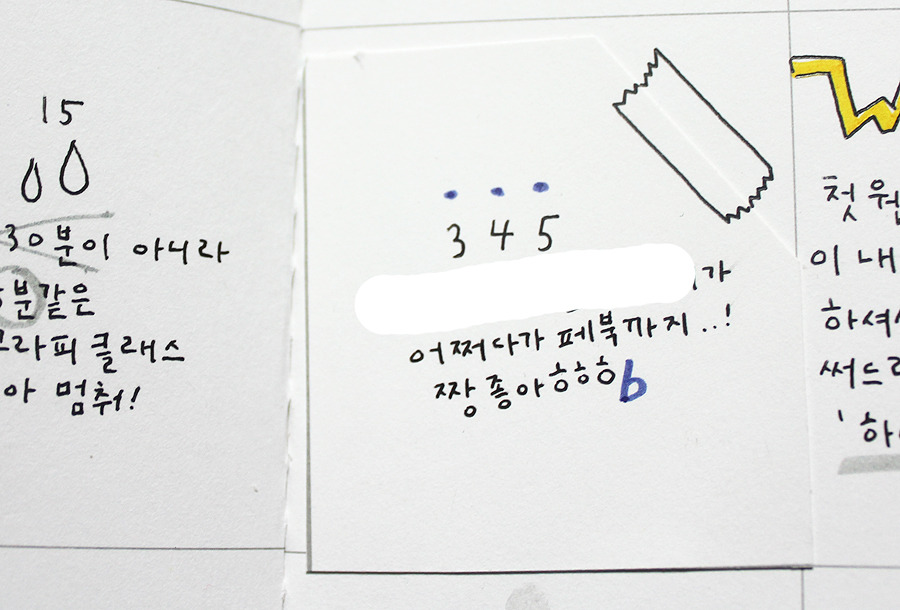 15
30분이 아니라
분같은
라피 클래스
아 멈춰!
3 4 5
가
어쩌다가 페북까지..!
짱 좋아ㅎㅎㅎb
첫 웹
이 내
하셔
써드
'하